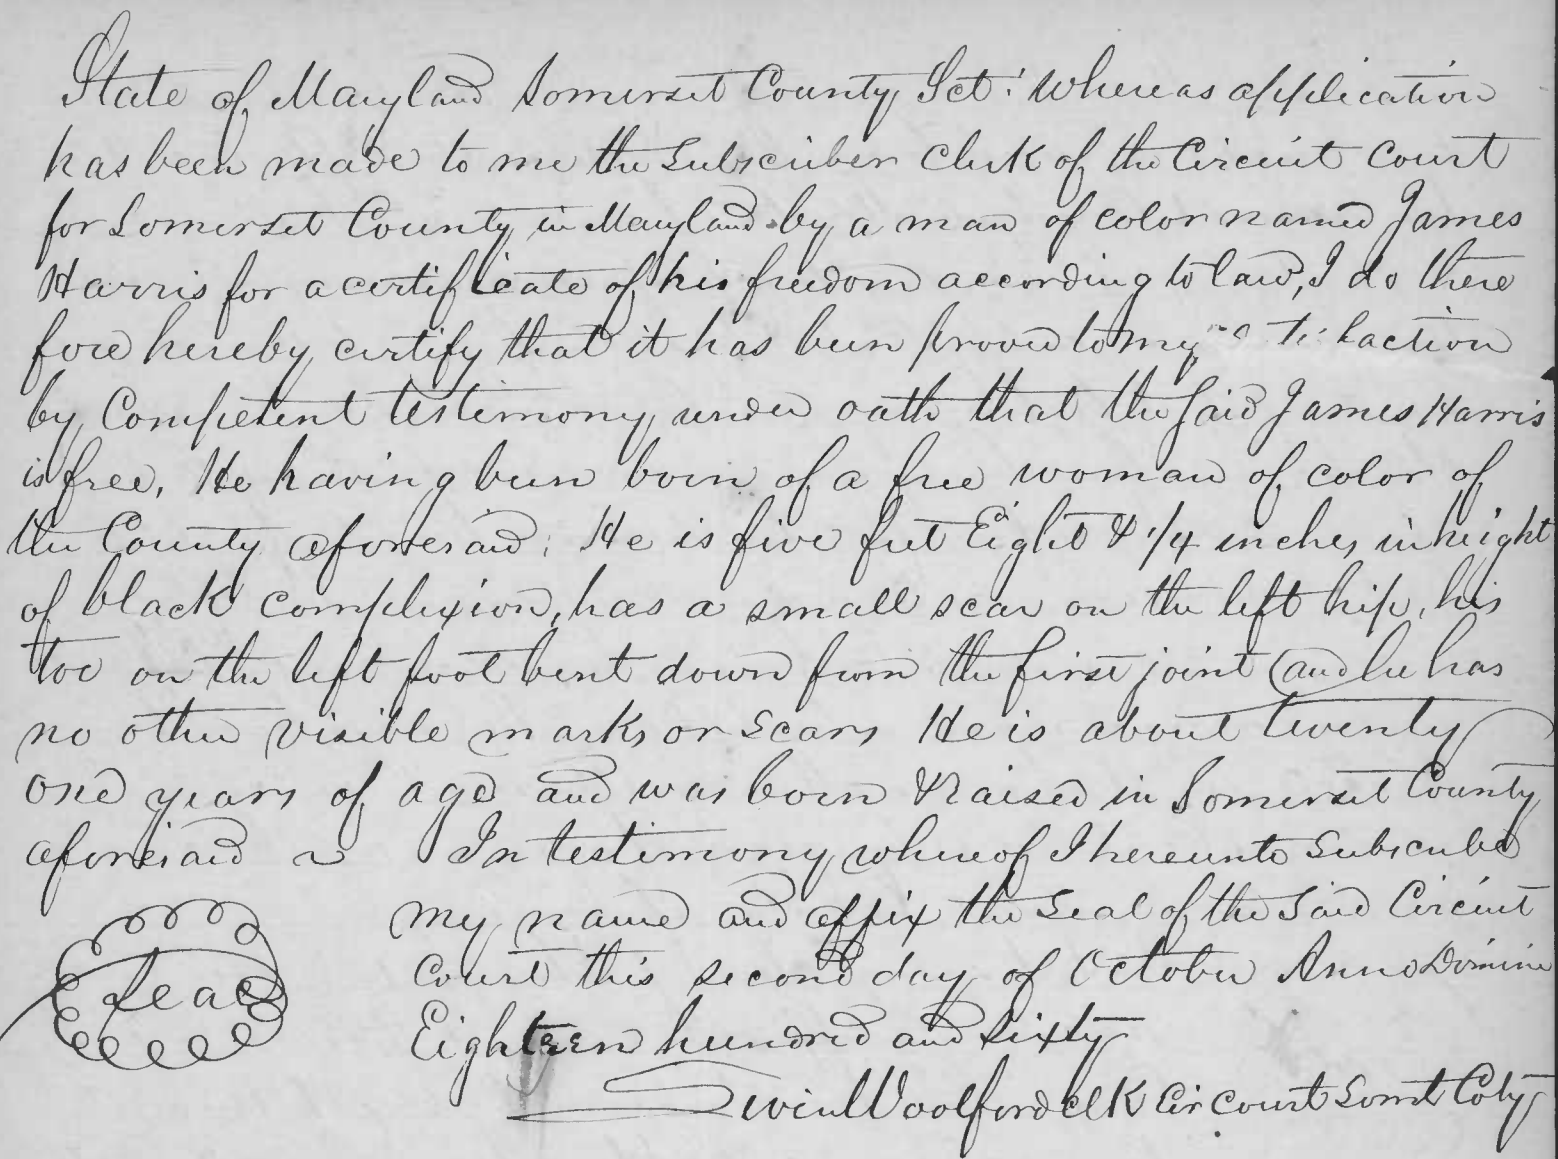 State of Maryland Somerset County Sct: Whereas application
has been made to me the Subscriber Clerk of the Circuit Court
for Somerset County in Maryland by a man of color named James
Harris for a certificate of his freedom according to law, I do there
fore hereby certify that it has been proved to my satisfaction
by Competent testimony under oath that the said James Harris
is free, He having been born of a free woman of color of
the County aforesaid; He is five feet Eight & 1/4 inches in height
of black complexion, has a small scar on the left hip, his
toe on the left foot bent down from the first joint and he has
no other visible marks or scars He is about twenty
one years of age and was born & Raised in Somerset County
aforesaid ~ In testimony whereof I hereunto Subscribe
my name and affix the Seal of the said Circuit
Court this second day of October Anno Domini
Eighteen hundred and sixty
Seal
Woolford clk Cir Court Somt Coty